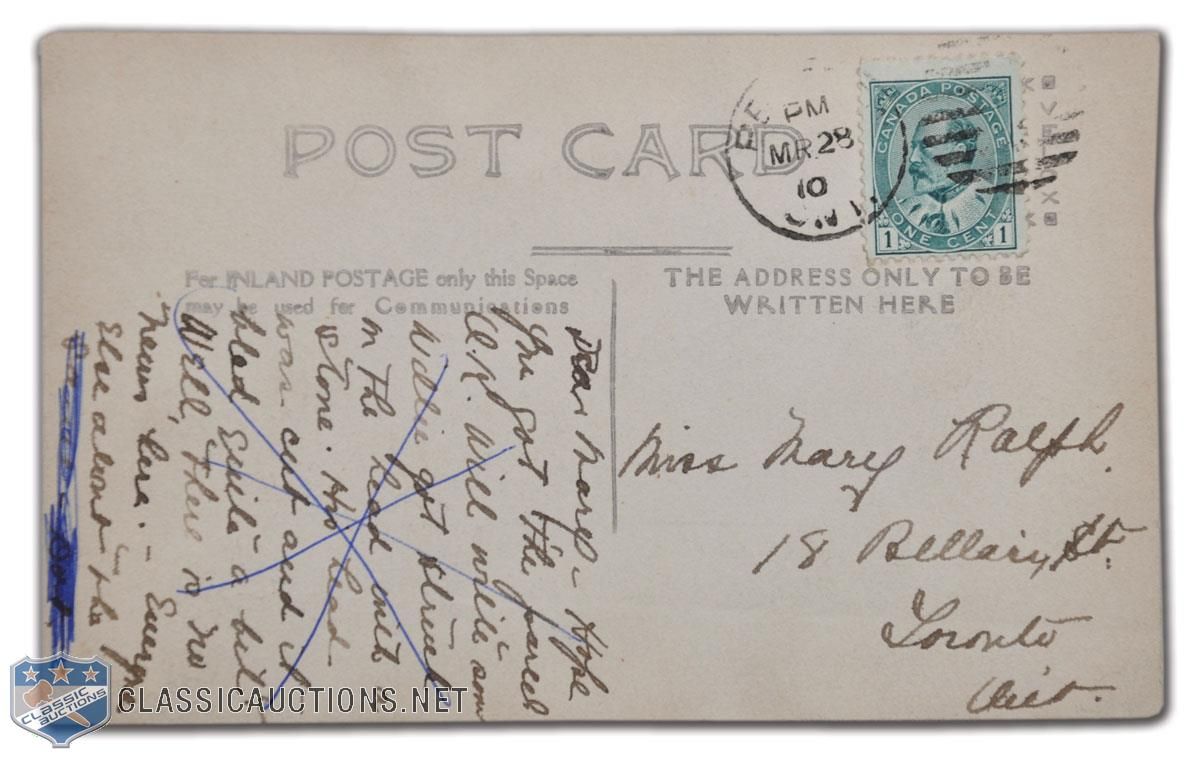 POST CARD
PM
MR 28
10
CANADA POSTAGE
ONE CENT
1 1
For INLAND POSTAGE only this Space
may be used for Communications
THE ADDRESS ONLY TO BE
WRITTEN HERE
Dear Mary - Hope
you got the parcel
O.K. Will write soon
Willie got struck
in the head with
stone. His head
was cut and it
bled quite a bit
Well, there is no
news here. -
Else about the
Miss Mary Ralph.
18 Bellair St.
Toronto
Ont.
CLASSIC
AUCTIONS
CLASSICAUCTIONS.NET